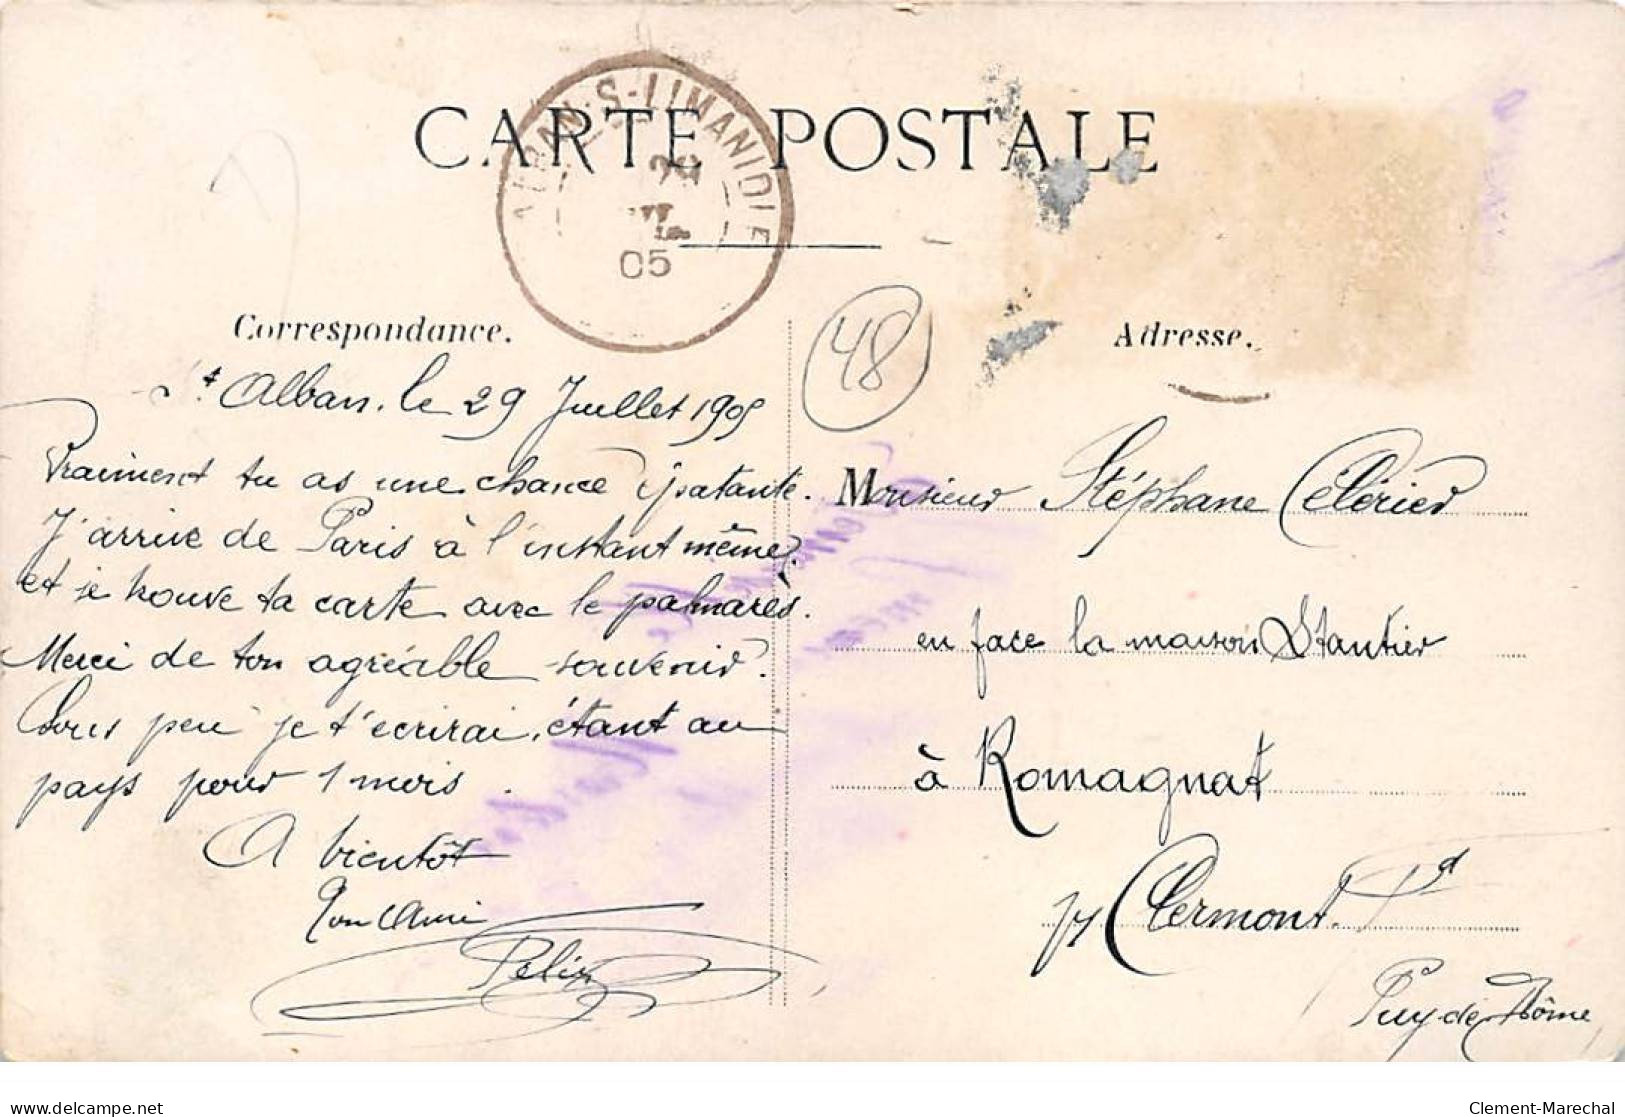 CARTE POSTALE
S-LIMANIOLE
05
48
Correspondance.
Sᵗ Alban. le 29 Juillet 1905
Vraiment tu as une chance épatante.
J'arrive de Paris à l'instant même,
et je trouve ta carte avec le palmarès.
Merci de ton agréable souvenir.
Sous peu je t'ecrirai, étant au
pays pour 1 mois.
A bientôt
Ton ami
Félix
Adresse.
Monsieur Stéphane Célérier
en face la maison
à Romagnat
px Clermont-Fd
Puy-de-Dôme
delcampe.net
Clement-Marechal